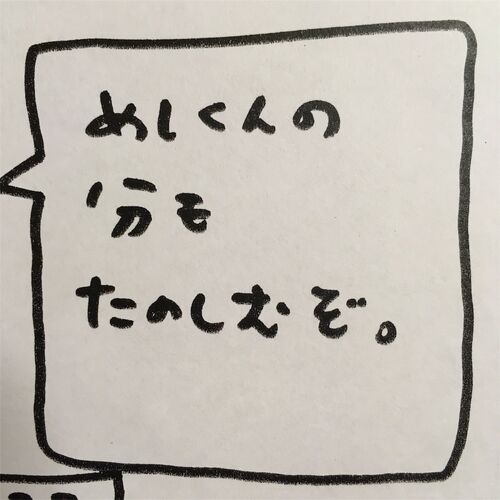 めしくんの
分も
たのしむぞ。